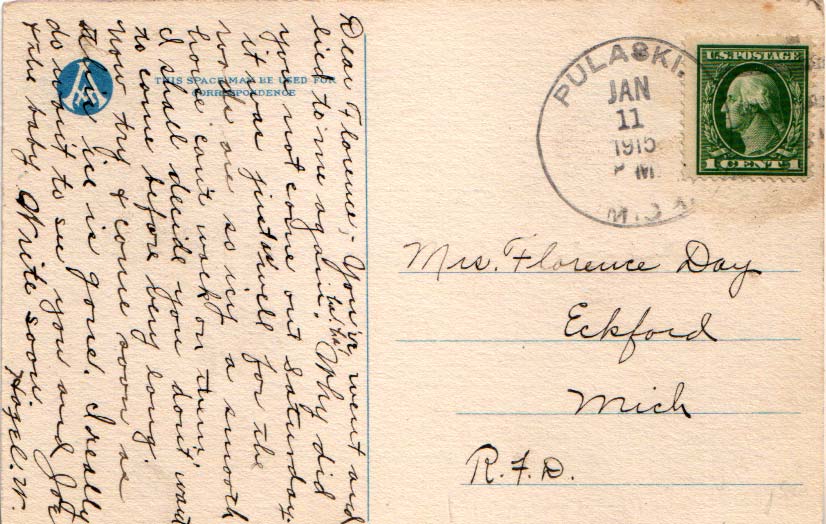 Dear Florence,- You've went and
lied to me again. ha. ha. Why did
you not come out Saturday.
it was just as well for the
roads are so icy a smooth
hore can't work on them.
I shall decide you don't want
to come before very long.
now try & come soon as
he is gone. I really
do want to see you and Joe
& the baby Write soon
Hazel. W.
THIS SPACE MAY BE USED FOR
CORRESPONDENCE
PULASKI.
JAN
11
1915
P M
MICH
U.S. POSTAGE
1 CENT 1
Mrs. Florence Day
Eckford
Mich
R.F.D.